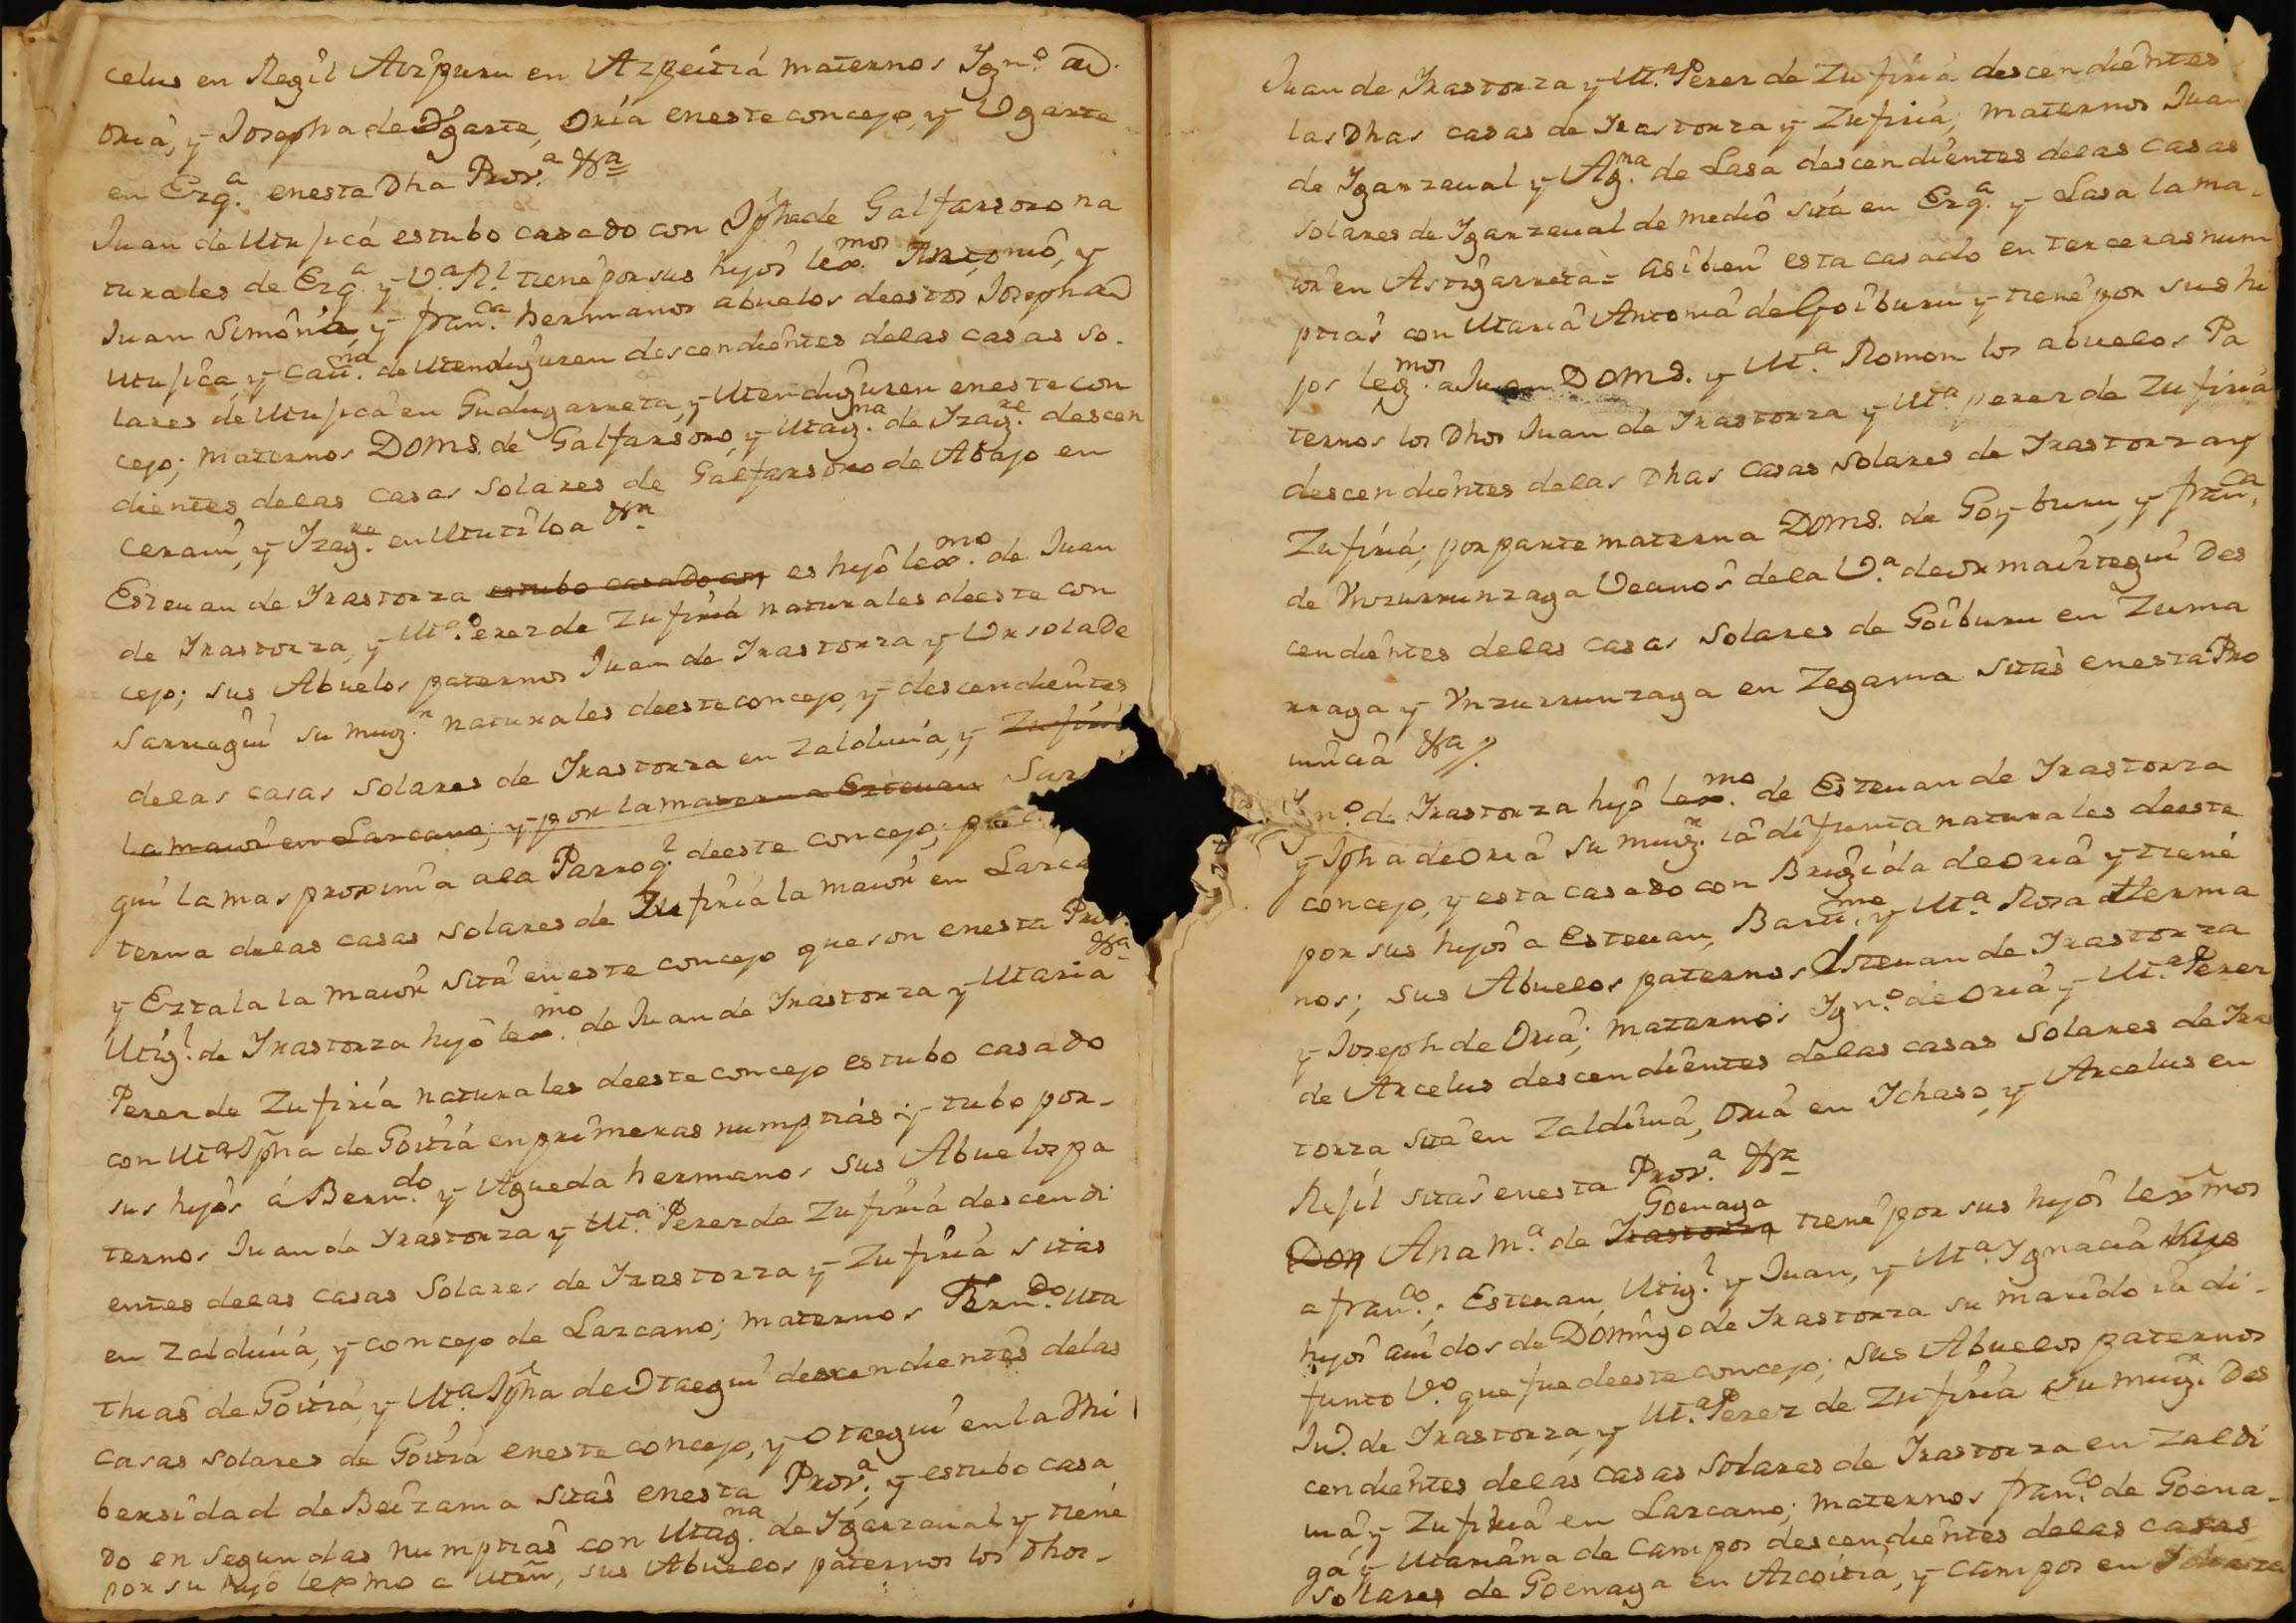 celus en Regil Aripuru en Azpeitia maternos Ygn.º de
Oria, y Josepha de Ygarte, Oria eneste concejo, y Vgarte
en Ezq.ª enesta Dha Prov.ª &ª
Juan de Mujica estubo casado con Jpha de Galfarsoro na
turales de Ezq.ª y V.ª Rl. tiene por sus hijos lex.mos Antonio, y
Juan Simon y fran.ca hermanos abuelos deestos Joseph de
Mujica, y Cat.na de Mendiguren descendientes delas casas so-
lares de Mujica en Gudugarreta, y Mendiguren eneste con
cejo; maternos Doms. de Galfarsoro, y Mag.na de Yzag.re descen
dientes delas casas solares de Galfarsoro de Abajo en
Cerain, y Yzag.re en Mutiloa &ª
Estevan de Yrastorza estubo casado con es hijo lex.mo de Juan
de Yrastorza, y M.ª Perez de Zufiria naturales deeste con
cejo; sus Abuelos paternos Juan de Yrastorza y Vrsola de
Sarriegui su mug.r naturales deeste concejo, y descendientes
delas casas solares de Yrastorza en Zaldivia, y Zufiria
la maior en Lazcano; y por la materna Estevan Sarrie
gui la mas proxima ala Parroq.l deeste concejo;
terna delas casas solares de Zufiria la maior en Lazca
y Eztala la maior sita eneste concejo que son enesta Prov. &ª
Mig.l de Yrastorza hijo lex.mo de Juan de Yrastorza y Maria
Perez de Zufiria naturales deeste concejo estubo casado
con M.ª Jpha de Goitia en primeras numptias y tubo por-
sus hijos á Bern.do y Agueda hermanos sus Abuelos pa
ternos Juan de Yrastorza y M.ª Perez de Zufiria descendi
entes delas casas Solares de Yrastorza y Zufiria sitas
en Zaldivia, y concejo de Lazcano; maternos Bern.do Ma
thias de Goitia, y M.ª Jpha de Otaegui descendientes delas
casas solares de Goitia eneste concejo, y Otaegui en la Vni
bersidad de Beizama sitas enesta Prov.ª, y estubo casa
do en segundas numptias con Mag.na de Ygarzaval y tiene
por su hijo lexmo a Mrn, sus Abuelos paternos los Dhos-
Juan de Yrastorza y M.ª Perez de Zufiria descendientes
las Dhas casas de Yrastorza y Zufiria; maternos Juan
de Ygarzaval y Ag.na de Lasa descendientes delas casas
solares de Ygarzaval de medio sita en Ezq.ª y Lasa la ma-
ior en Astigarreta= asi bien esta casado en terceras num
ptias con Maria Antonia de Goiburu y tiene por sus hi
jos leg.mos a Juan Doms. y M.ª Ramon los abuelos Pa
ternos los Dhos Juan de Yrastorza y M.ª perez de Zufiria
descendientes delas Dhas casas solares de Yrastorza y
Zufiria; por parte materna Doms. de Goyburu y fran.ca
de Ynzurrunzaga Vecinos dela V.ª de Ormaiztegui des
cendientes delas casas solares de Goiburu en Zuma
rraga y Ynzurrunzaga en Zegama sitas enesta Pro
vincia &ª
Ygn.º de Yrastorza hijo lex.mo de Estevan de Yrastorza
y Jpha de Oria su mug.r ia difunta naturales deeste
concejo, y esta casado con Brigida de Oria y tiene
por sus hijos a Estevan, Bart.me, y M.ª Rosa Herma
nos; sus Abuelos paternos Estevan de Yrastorza
y Joseph de Oria; maternos Ygn.º de Oria y M.ª Perez
de Arcelus descendientes delas casas Solares de Yras
torza sita en Zaldivia, Oria en Ychaso, y Arcelus en
Rejil sitas enesta Prov.ª &ª
Don Ana M.ª de Yrastorza Goenaga tiene por sus hijos lexmos
a fran.co, Estevan, Mig.l y Juan, y M.ª Ygnacia hijos
hijos avidos de Domingo de Yrastorza su marido ia di-
funto V.º que fue deeste concejo; sus Abuelos paternos
Ju.º de Yrastorza y M.ª Perez de Zufiria su mug.r Des
cendientes delas casas Solares de Yrastorza en Zaldi
via, y Zufiria en Lazcano; maternos fran.co de Goena-
ga y Mariana de Campos descendientes delas casas
solares de Goenaga en Azcoitia, y Campos en